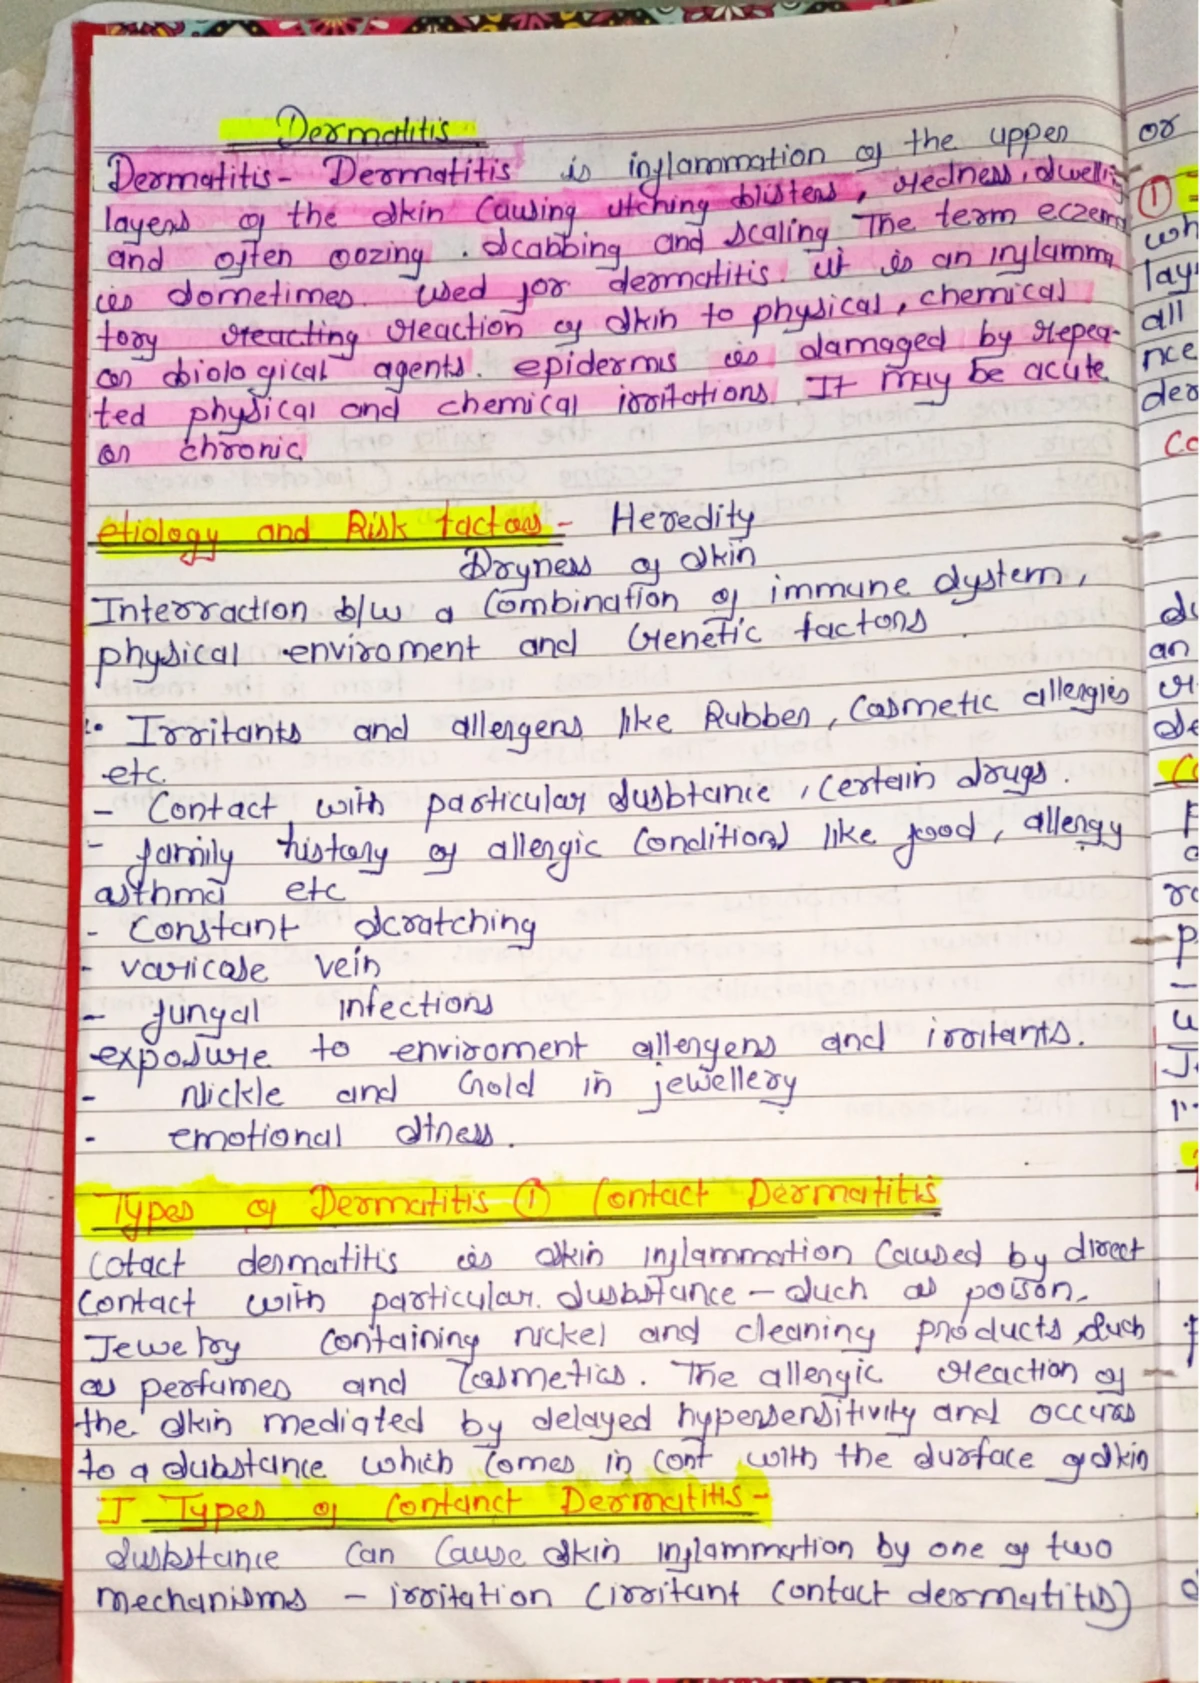 Dermatitis
Dermatitis - Dermatitis is inflammation of the upper
layers of the skin causing itching blisters, redness, swelling
and often oozing. Scabbing and scaling The term eczema
is sometimes used for dermatitis. it is an inflamma
tory reacting reaction of skin to physical, chemical
or biological agents. epidermis is damaged by repea-
ted physical and chemical irritations. It may be acute
or chronic
etiology and Risk factors - Heredity
Dryness of skin
Interraction b/w a combination of immune system,
physical enviroment and Genetic factors
Irritants and allergens like Rubber, Cosmetic allergies
etc.
- Contact with particular susbtance, certain drugs.
- family history of allergic conditions like food, allergy
asthma etc
- Constant scratching
- varicose vein
- fungal infections
exposure to enviroment allergens and irritants.
- Nickle and Gold in jewellery
- emotional stress.
Types of Dermatitis ① Contact Dermatitis
Cotact dermatitis is skin inflammation caused by direct
contact with particular susbstance - such as poison,
Jewelry containing nickel and cleaning products, such
as perfumes and Cosmetics. The allergic reaction of
the skin mediated by delayed hypersensitivity and occurs
to a substance which comes in cont with the surface of skin
I Types of Contanct Dermatitis -
susbstance can cause skin inflammation by one of two
mechanisms - irritation (irritant contact dermatitis)